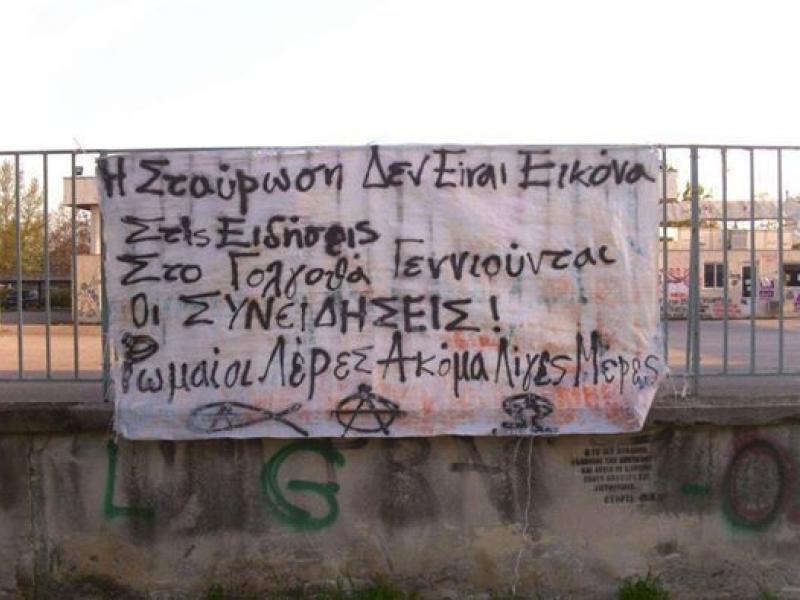 Η Σταύρωση Δεν Είναι Εικόνα
Στις Ειδήσεις
Στο Γολγοθά Γεννιούνται
Οι ΣΥΝΕΙΔΗΣΕΙΣ!
Ρωμαίοι Λέρες Ακόμα Λίγες Μέρες
L G